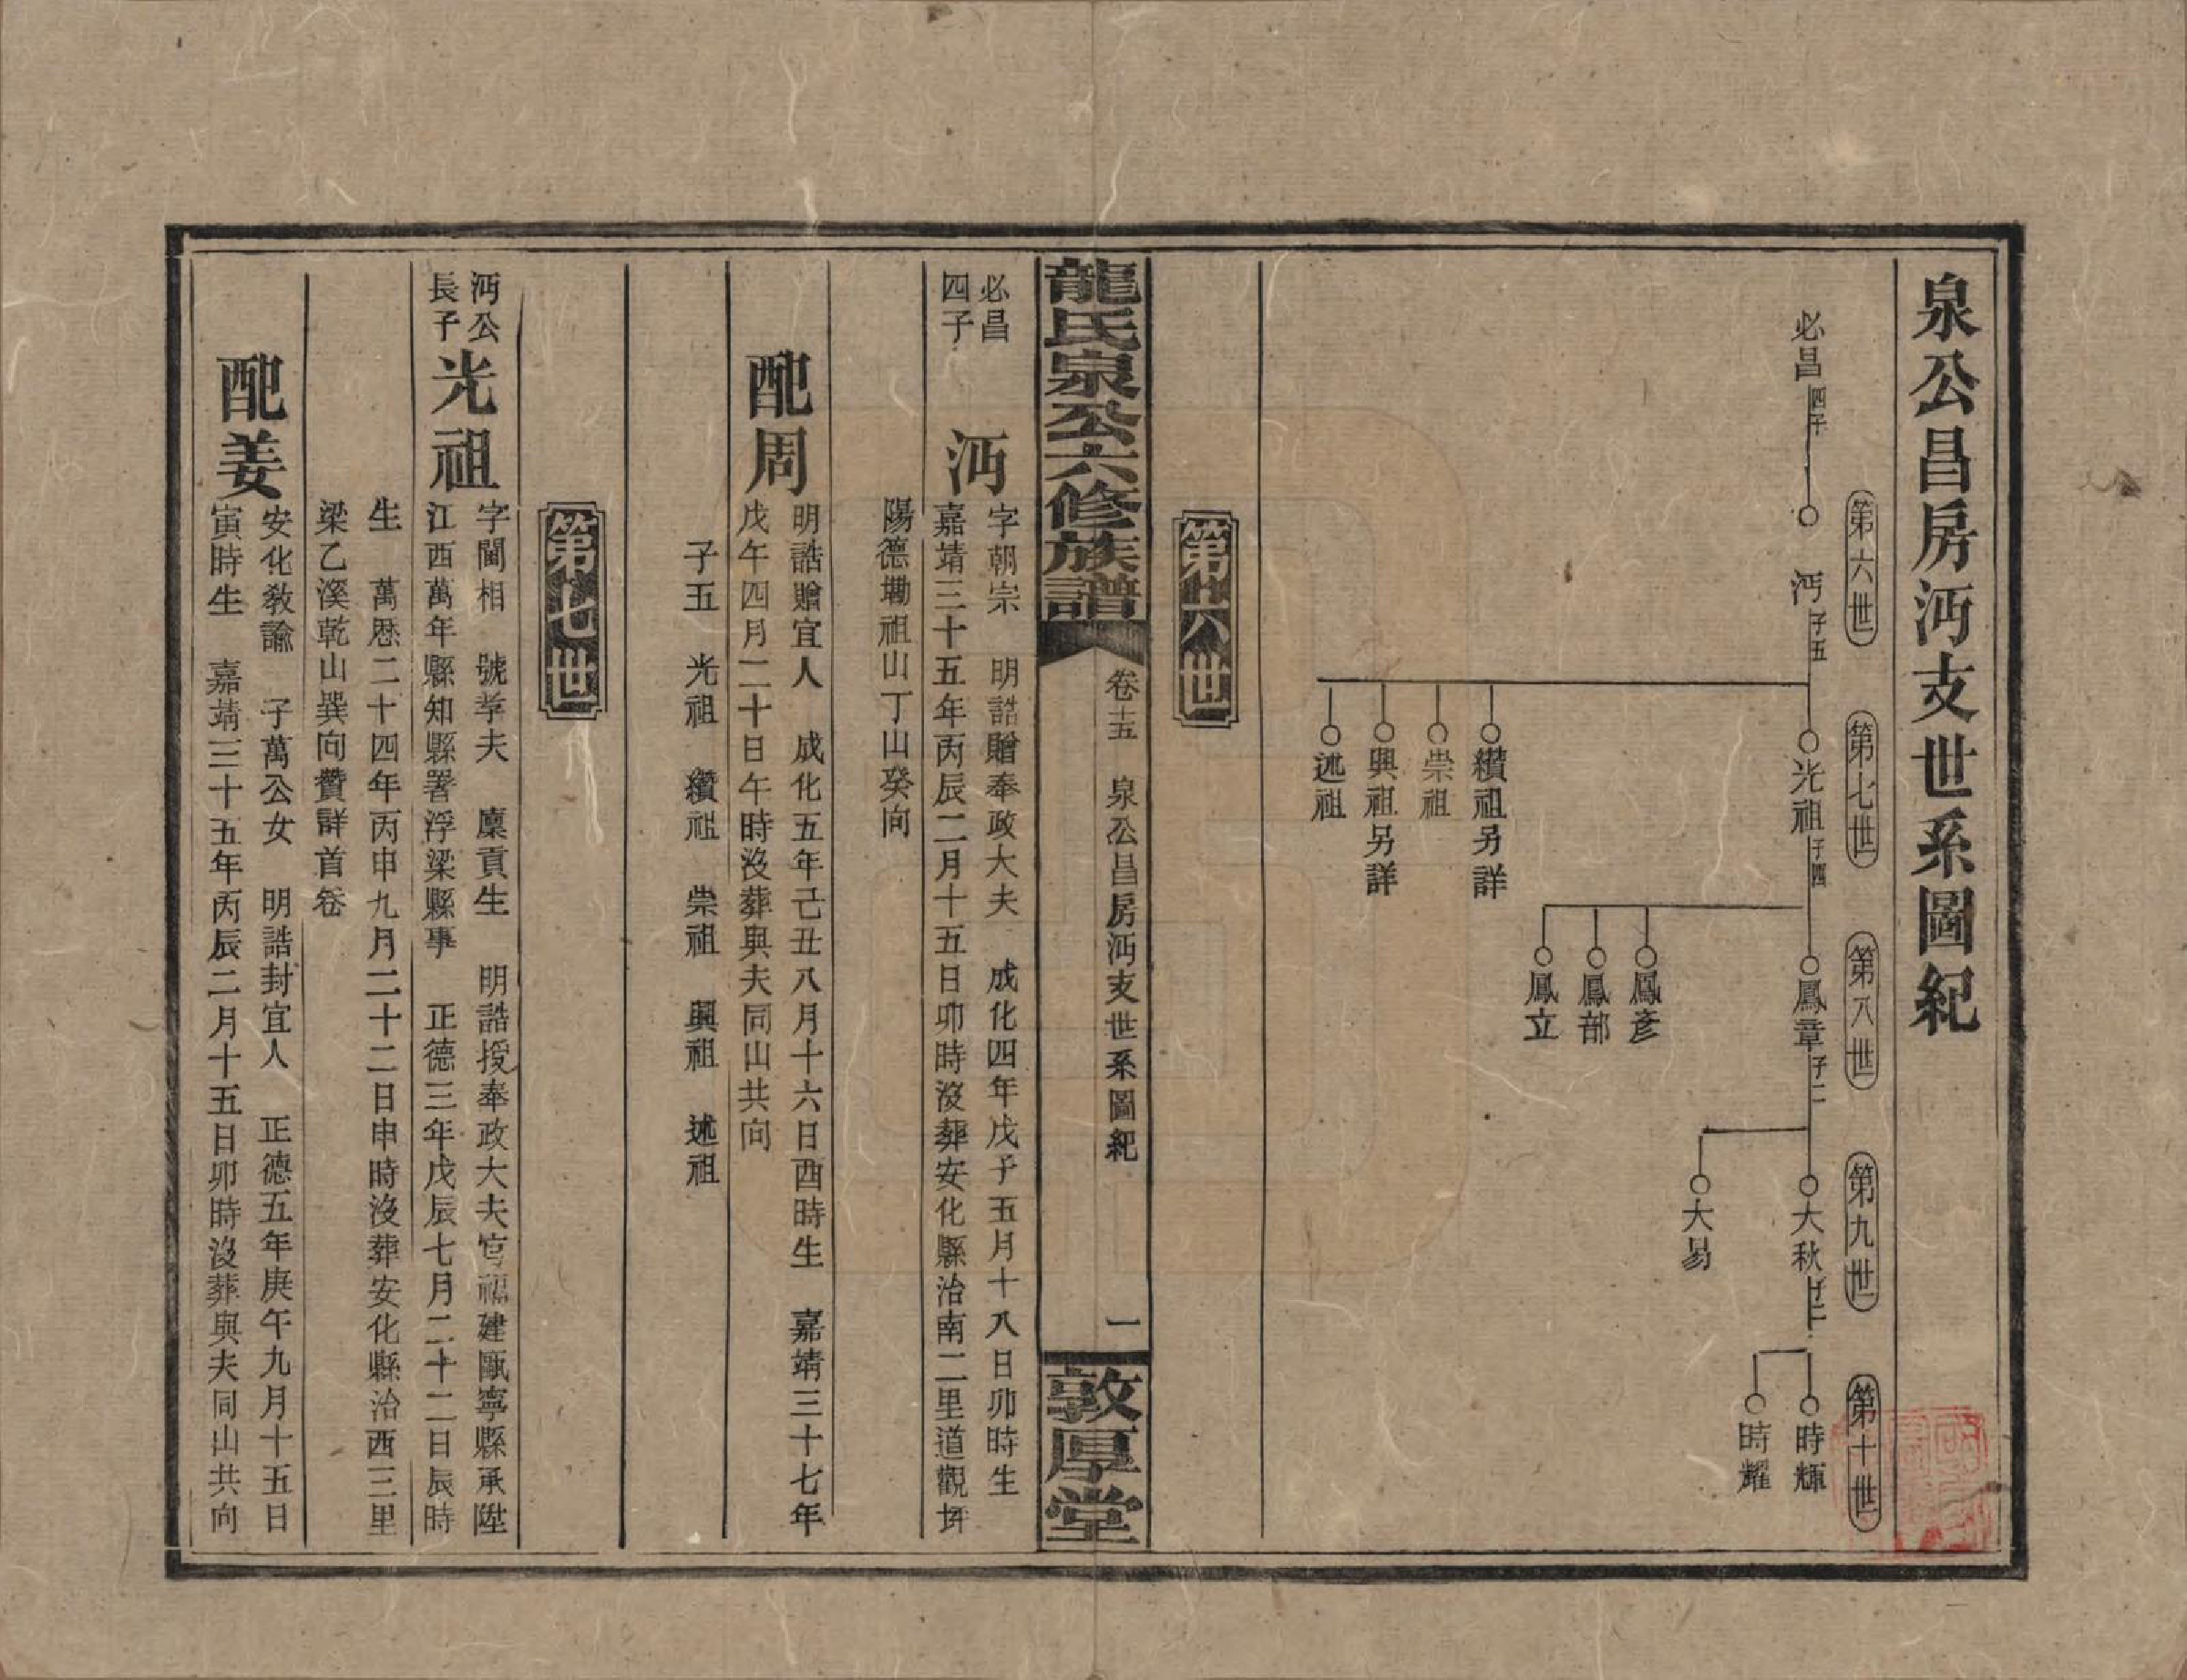 泉公昌房沔支世系圖紀
第六世
第七世
第八世
第九世
第十世
必昌四子
沔子五
光祖子四
鳳章子二
大秋
時輝
時耀
大易
鳳彥
鳳部
鳳立
纘祖另詳
崇祖
興祖另詳
述祖
第六世
龍氏泉公六修族譜
卷十五 泉公昌房沔支世系圖紀
一
敦厚堂
必昌
四子
沔
字朝宗 明誥贈奉政大夫 成化四年戊子五月十八日卯時生
嘉靖三十五年丙辰二月十五日卯時沒葬安化縣治南二里道觀坪
陽德墈祖山丁山癸向
配周
明誥贈宜人 成化五年己丑八月十六日酉時生 嘉靖三十七年
戊午四月二十日午時沒葬與夫同山共向
子五 光祖 纘祖 崇祖 興祖 述祖
第七世
沔公
長子
光祖
字閶相 號孝夫 廩貢生 明誥授奉政大夫官福建甌寧縣承陞
江西萬年縣知縣署浮梁縣事 正德三年戊辰七月二十二日辰時
生 萬厯二十四年丙申九月二十二日申時沒葬安化縣治西三里
梁乙溪乾山巽向贊詳首卷
配姜
安化敎諭 子萬公女 明誥封宜人 正德五年庚午九月十五日
寅時生 嘉靖三十五年丙辰二月十五日卯時沒葬與夫同山共向